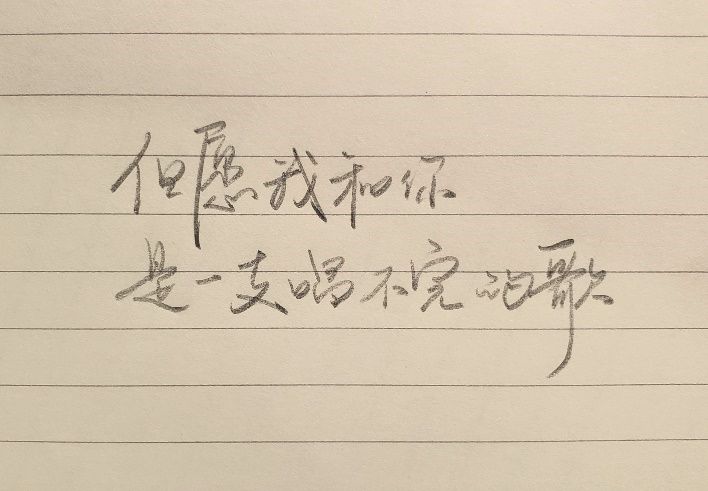 但愿我和你
是一支唱不完的歌